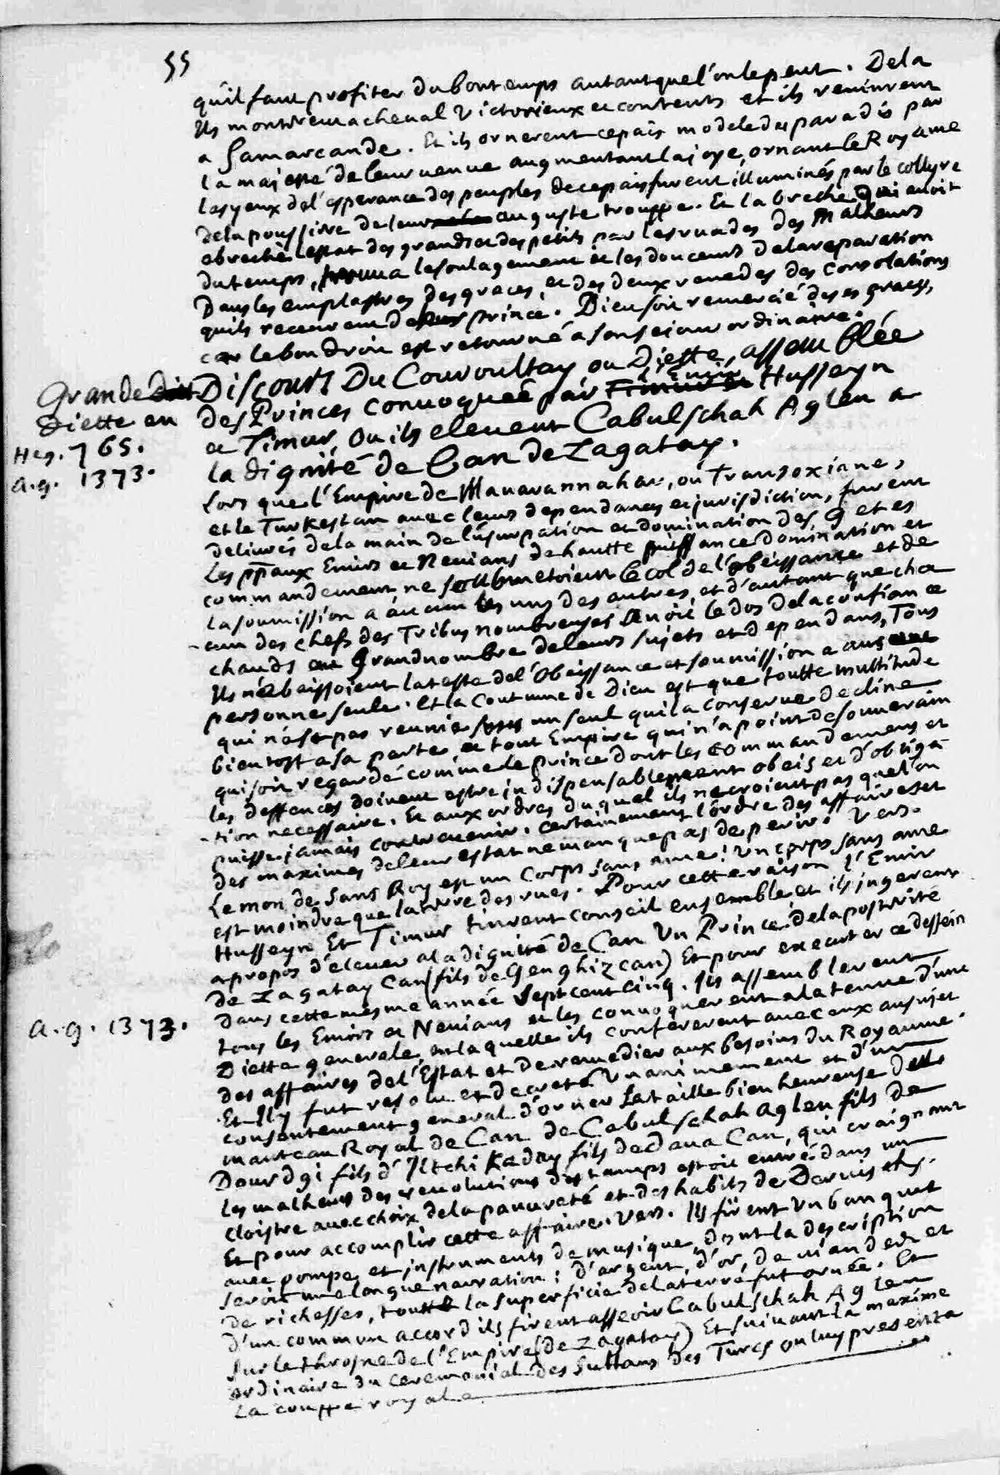 55
qu'il faut profiter du bon temps autant que l'on le peut. De la
Ils monterent a cheval victorieux et contents et ils revinrent
a Samarcande. Et ils ornerent ce païs modele du paradis par
la majesté de leur venue augmentant la joye, ornant le Royaume
Les yeux de l'esperance des peuples de ce païs furent illuminés par le collyre
de la poussiere de leur auguste trouppe. Et la breche qui avoit
ebreché l'estat des grands et des petits par les ruades des Malheurs
du temps, trouva le soulagement et les douceurs de la reparation
Dans les emplastres des graces, et des deux remedes des consolations
qu'ils receurent de prince. Dieu soit remercié de ses graces,
car le bon droit est retourné a son sejour ordinaire.
Grande Diette en
Heg. 765.
a.g. 1373.
Discours Du Couroultay ou Diette, assemblée
des Princes convoquée par l'Emir Husseyn
et Timur, ou ils elevent Cabulschah Aglen a
la dignité de Can de Zagatay.
Lors que l'Empire de Mauvarannahar, ou Transoxiane,
et le Turkestan avec leurs dependances et jurisdiction, furent
delivrés de la main de l'usurpation et domination des Getes
Les ppaux Emirs et Nevians de haute puissance domination et
commandement ne soubmetoient le col de l'obeissance et de
la soumission a aucun les uns des autres, et d'autant que cha
-cun des chefs des Tribus nombreuses avoit le dos de la confiance
chauds grand nombre de leurs sujets et dependans, Tous
Ils n'abaissoient la teste de l'obeissance et soumission a aucune
personne seule. Et la Coutume de Dieu est que toutte multitude
qui n'est pas reunie sous un seul qui la conserve decline
bientost a sa perte et tout Empire qui n'a point de souverain
qui soit regardé comme le prince dont les commandemens et
les deffences doivent estre indispensablement obeis et d'obliga-
-tion necessaire. Et aux ordres duquel ils ne croient pas que l'on
puisse jamais contrevenir. certainement l'ordre des affaires et
des maximes de leur estat ne manque pas de perir. Vers.
Le monde sans Roy est un Corps sans ame! Un corps sans ame
est moindre que la terre des rues. Pour cette raison l'Emir
Husseyn Et Timur tinrent conseil ensemble et ils jugerent
a propos d'elever a la dignité de Can Un Prince de la posterité
de Zagatay Can (fils de Genghizcan) Et pour executer ce dessein
Dans cette mesme année Sept cent Cinq. Ils assemblerent
a.g. 1373.
tous les Emirs et Nevians et les convoquerent a la tenue d'une
Diette generale, en laquelle ils confererent avec eux au sujet
des affaires de l'Estat et de remedier aux besoins du Royaume.
Et Il y fut resolu et decreté Unanimement et d'un
consentement general d'orner la taille bienheureuse du
manteau Royal de Can de Cabulschah Aglen fils de
Dourdgi fils d'Iltchikaday fils de Dava Can, qui craignant
les malheurs des revolutions des tamps estoit entré dans un
cloistre avec choix de la pauvreté et des habits de Dervisches.
Et pour accomplir cette affaire. Vers. Ils firent Un banquet
avec pompe, et instruments de musique, dont la description
seroit une longue narration: d'argent, d'or, de viandes et
de richesses, toutte la superficie de la terre fut ornée. Et
D'un commun accord ils firent asseoir Cabulschah Aglen
Sur le throsne de l'Empire (de Zagatay) Et suivant la maxime
ordinaire du ceremonial des Sultans des Turcs on luy presenta
La couppe royale